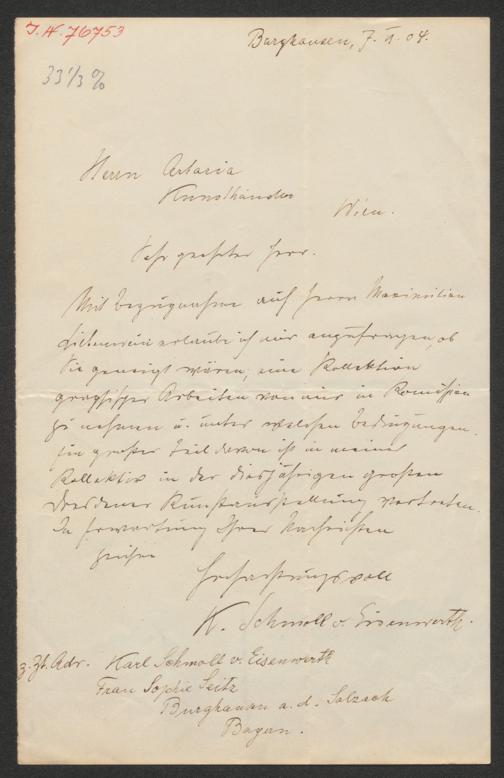 J. N. 76753
Burghausen, 7. VI. 04.
33 1/3 %
Herrn Artaria
Kunsthändler
Wien.
Sehr geehrter Herr.
Mit Bezugnahme auf Herrn Maximilian
Liebenwein erlaube ich mir anzufragen, ob
Sie geneigt wären, eine Kollektion
graphischer Arbeiten von mir in Komission
zu nehmen u. unter welchen Bedingungen.
Ein großer Teil davon ist in meiner
Kollektiv in der diesjährigen großen
Dresdener Kunstausstellung vertreten.
In Erwartung Ihrer Nachrichten
zeichne
Hochachtungsvoll
K. Schmoll v. Eisenwerth.
z. Zt. Adr. Karl Schmoll v. Eisenwerth
Frau Sophie Seitz
Burghausen a. d. Salzach
Bayern.